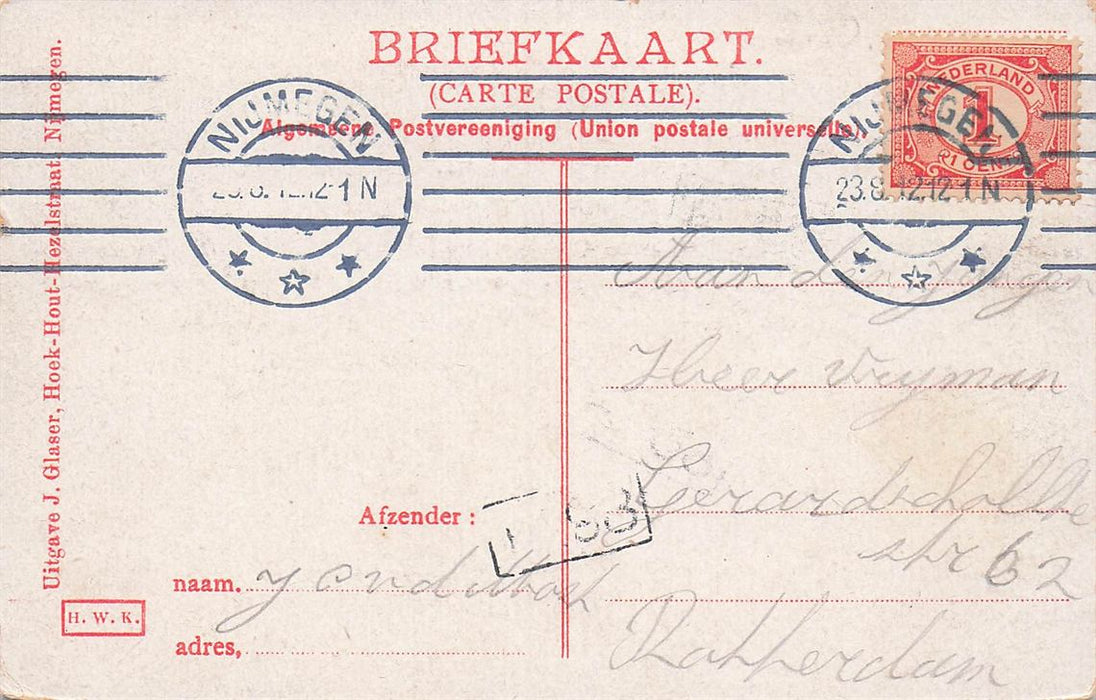 BRIEFKAART.
(CARTE POSTALE).
Algemeene Postvereeniging (Union postale universelle).
NEDERLAND
1
CENT
NIJMEGEN
23.8.12.12-1 N
NIJMEGEN
23.8.12.12 1 N
Uitgave J. Glaser, Hoek-Hout-Hezelstraat. Nijmegen.
H. W. K.
Afzender:
naam.
adres,
Aan den
Heer Vryman
Gerard
str 62
Rotterdam